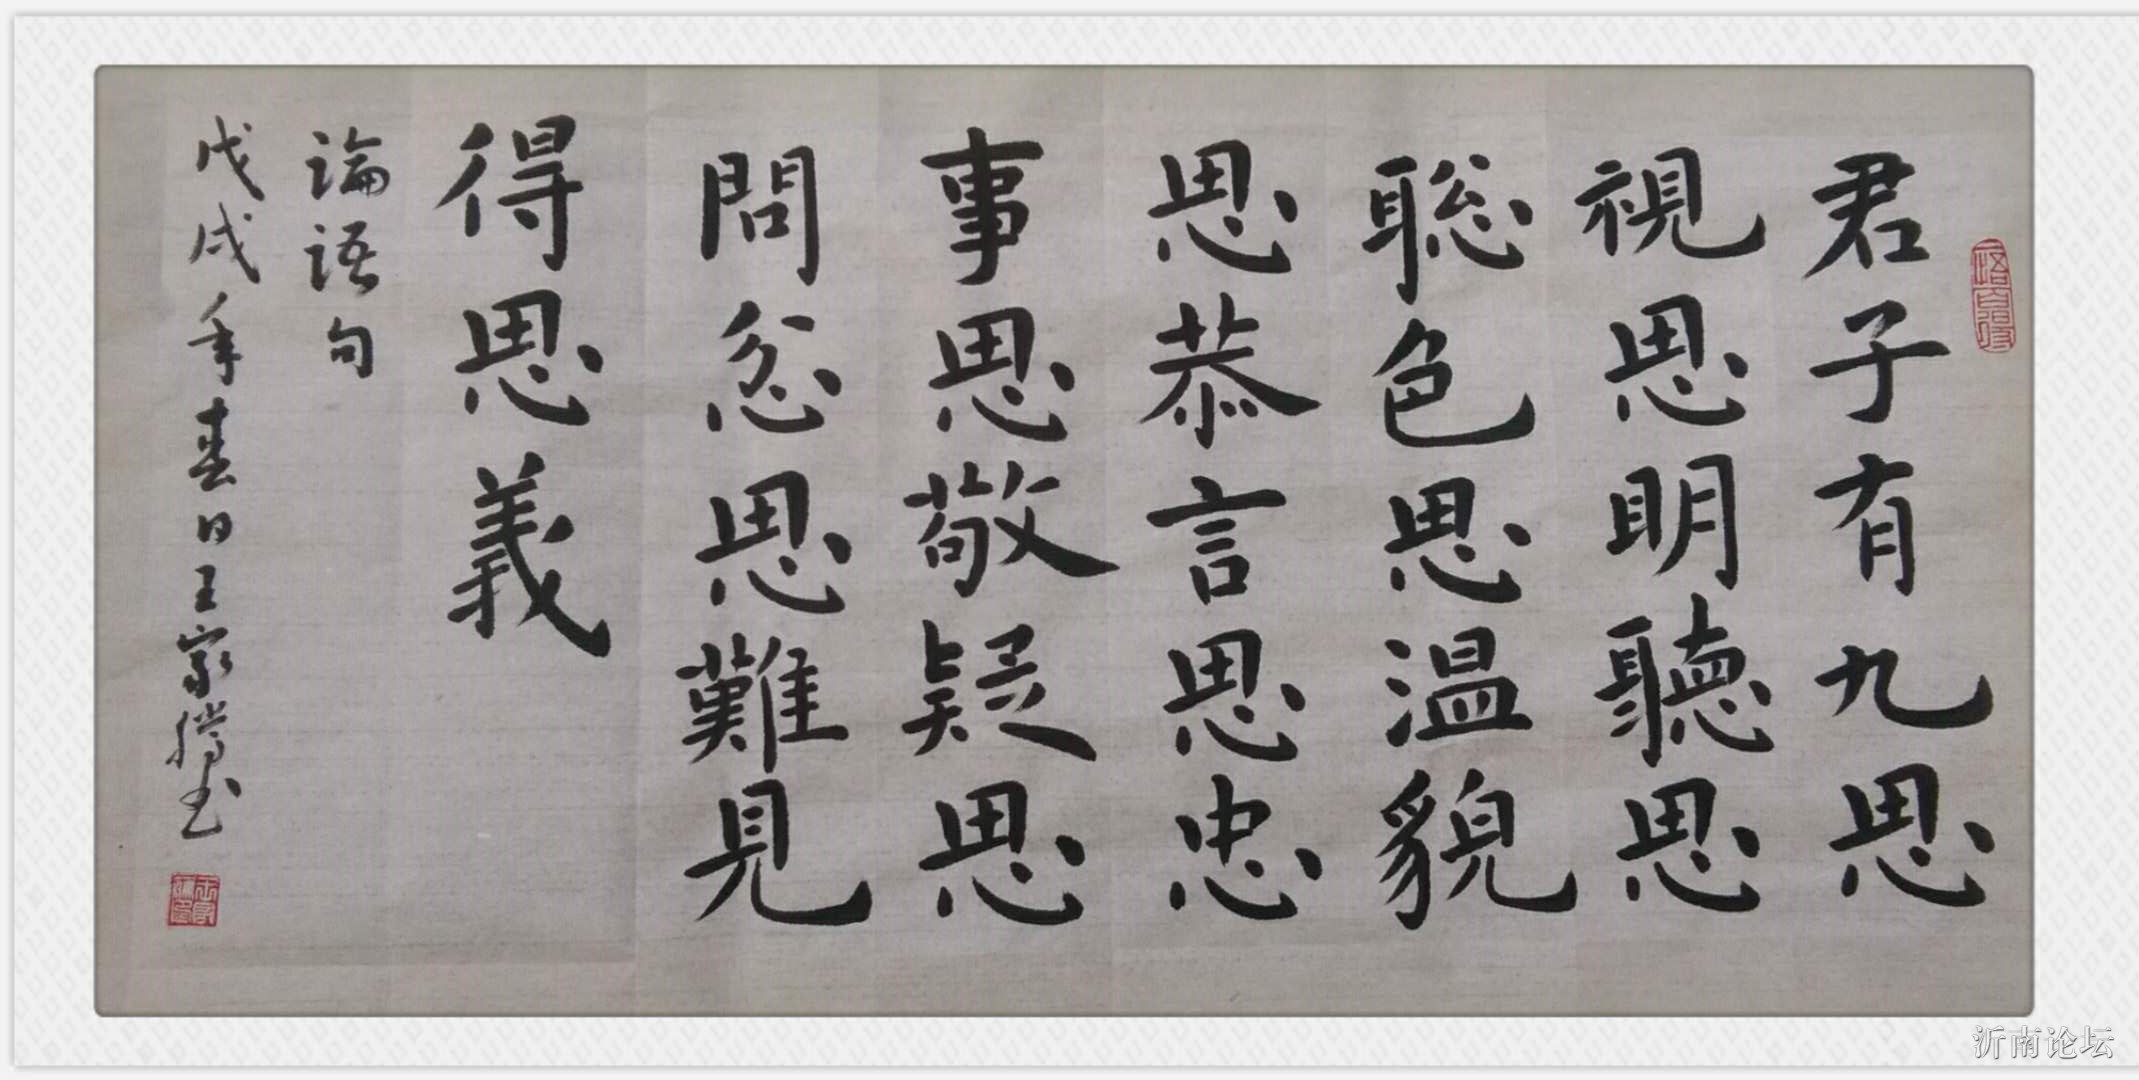 君子有九思
視思明聽思
聡色思温貌
思恭言思忠
事思敬疑思
問忿思難見
得思義
論語句
戊戌年春日王家騰书
沂南论坛